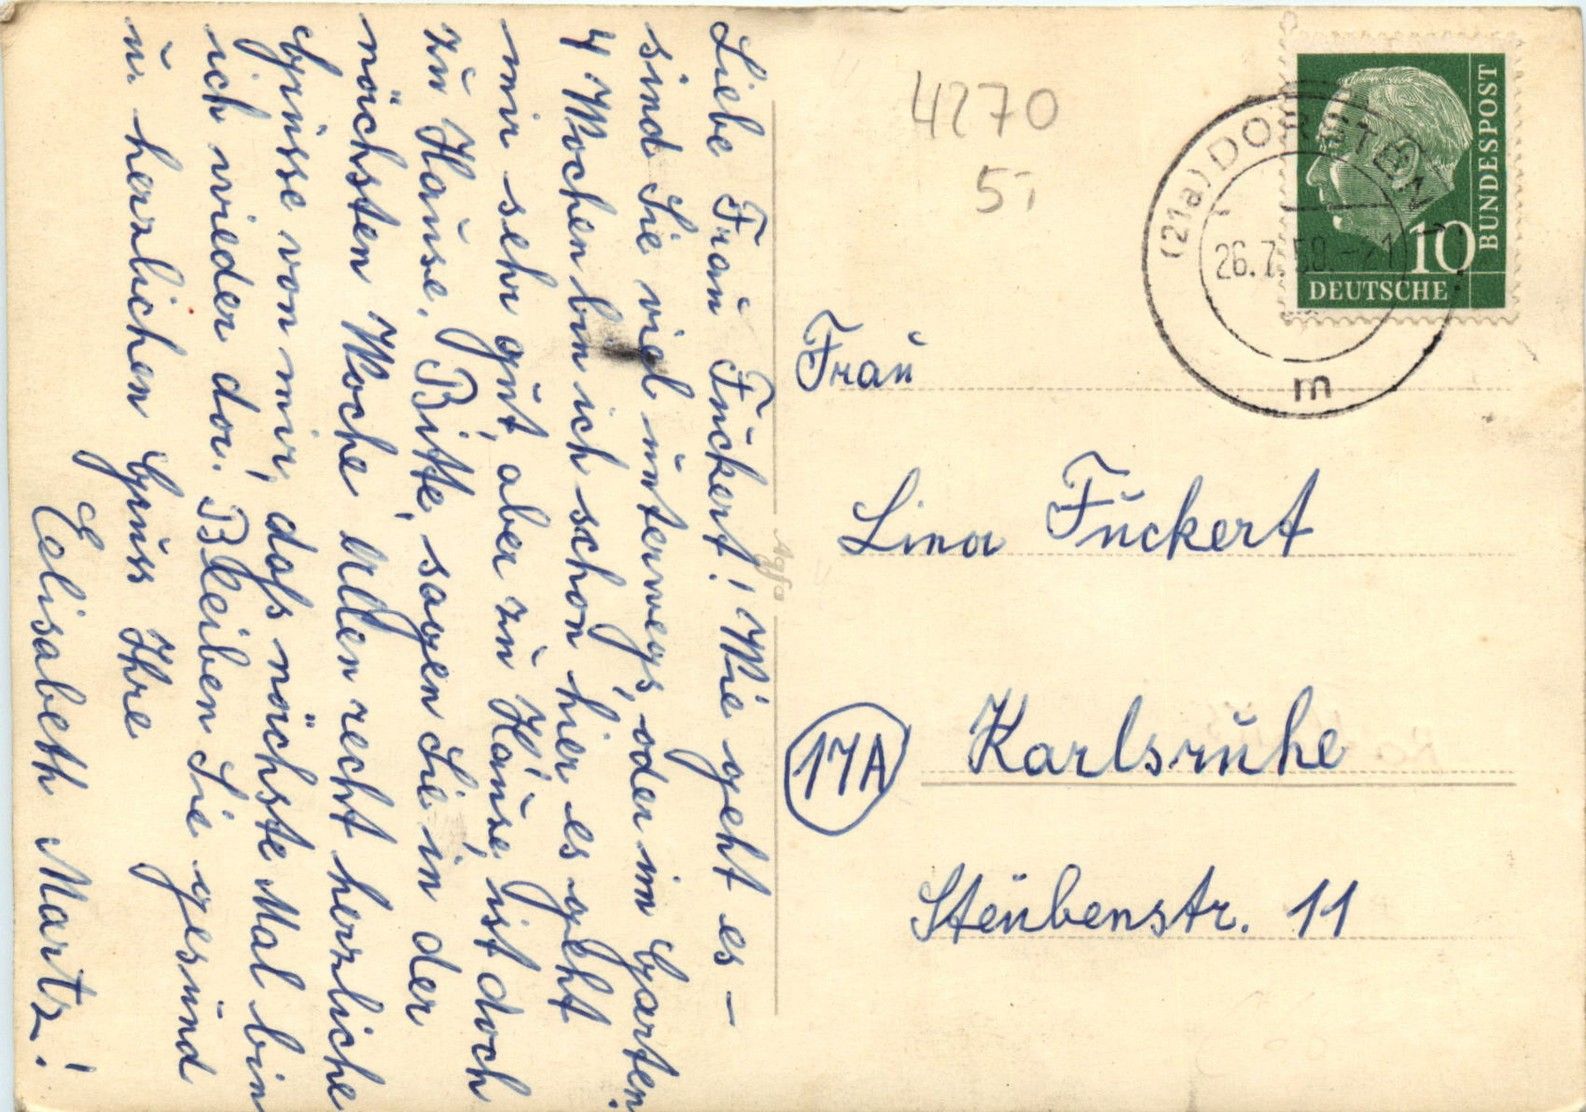 Liebe Frau Fuckert! Wie geht es –
sind Sie viel unterwegs, oder im Garten.
4 Wochen bin ich schon hier, es geht
mir sehr gut, aber zu Hause, ist doch
zu Hause. Bitte, sagen Sie in der
nächsten Woche, Allen recht herzliche
Grüsse von mir, dass nächste Mal bin
ich wieder da. Bleiben Sie gesund
u. herzlichen Gruss Ihre
Eelisabeth Martz!
4270
5,-
(21a) DORSTEN 1
26.7.58.-21
m
10
BUNDESPOST
DEUTSCHE
Agfa
Frau
Lina Fuckert
17A
Karlsruhe
Steubenstr. 11